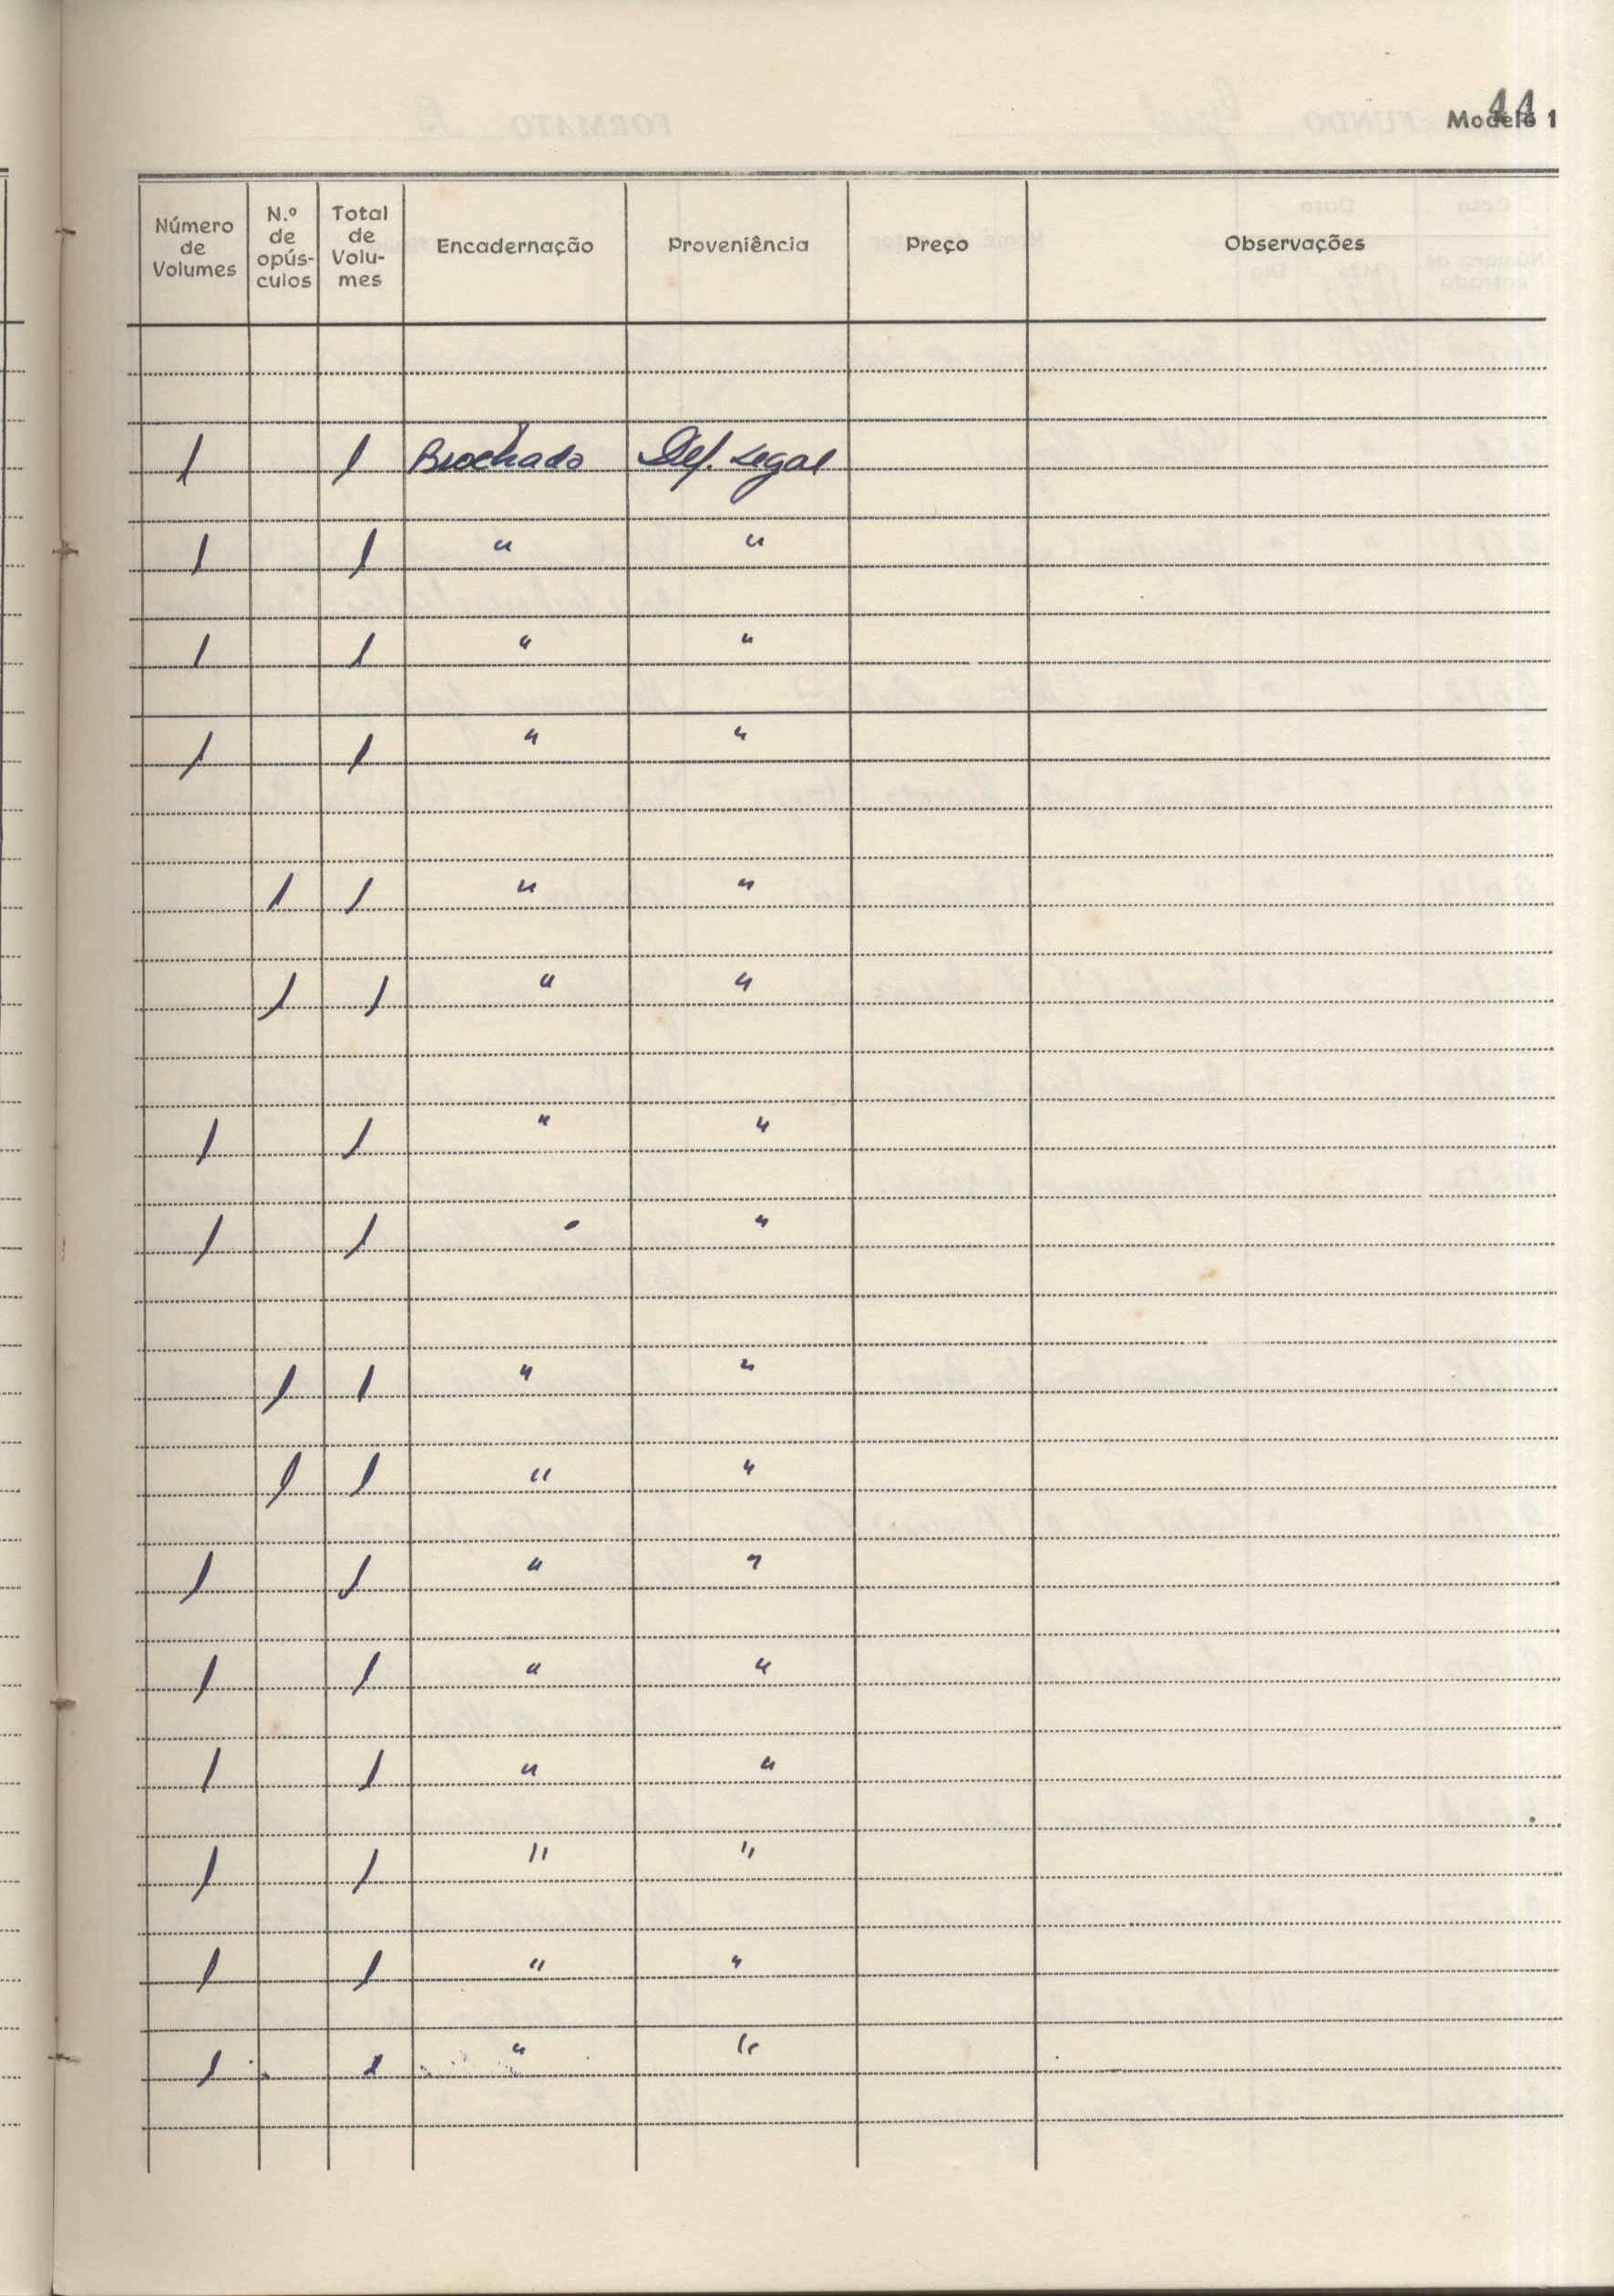 44
Modelo 1
Número de Volumes | N.º de opús-culos | Total de Volu-mes | Encadernação | Proveniência | Preço | Observações
1 | | 1 | Brochado | Dep. Legal
1 | | 1 | " | "
1 | | 1 | " | "
1 | | 1 | " | "
| 1 | 1 | " | "
| 1 | 1 | " | "
1 | | 1 | " | "
1 | | 1 | " | "
| 1 | 1 | " | "
| 1 | 1 | " | "
1 | | 1 | " | "
1 | | 1 | " | "
1 | | 1 | " | "
1 | | 1 | " | "
1 | | 1 | " | "
1 | | 1 | " | "